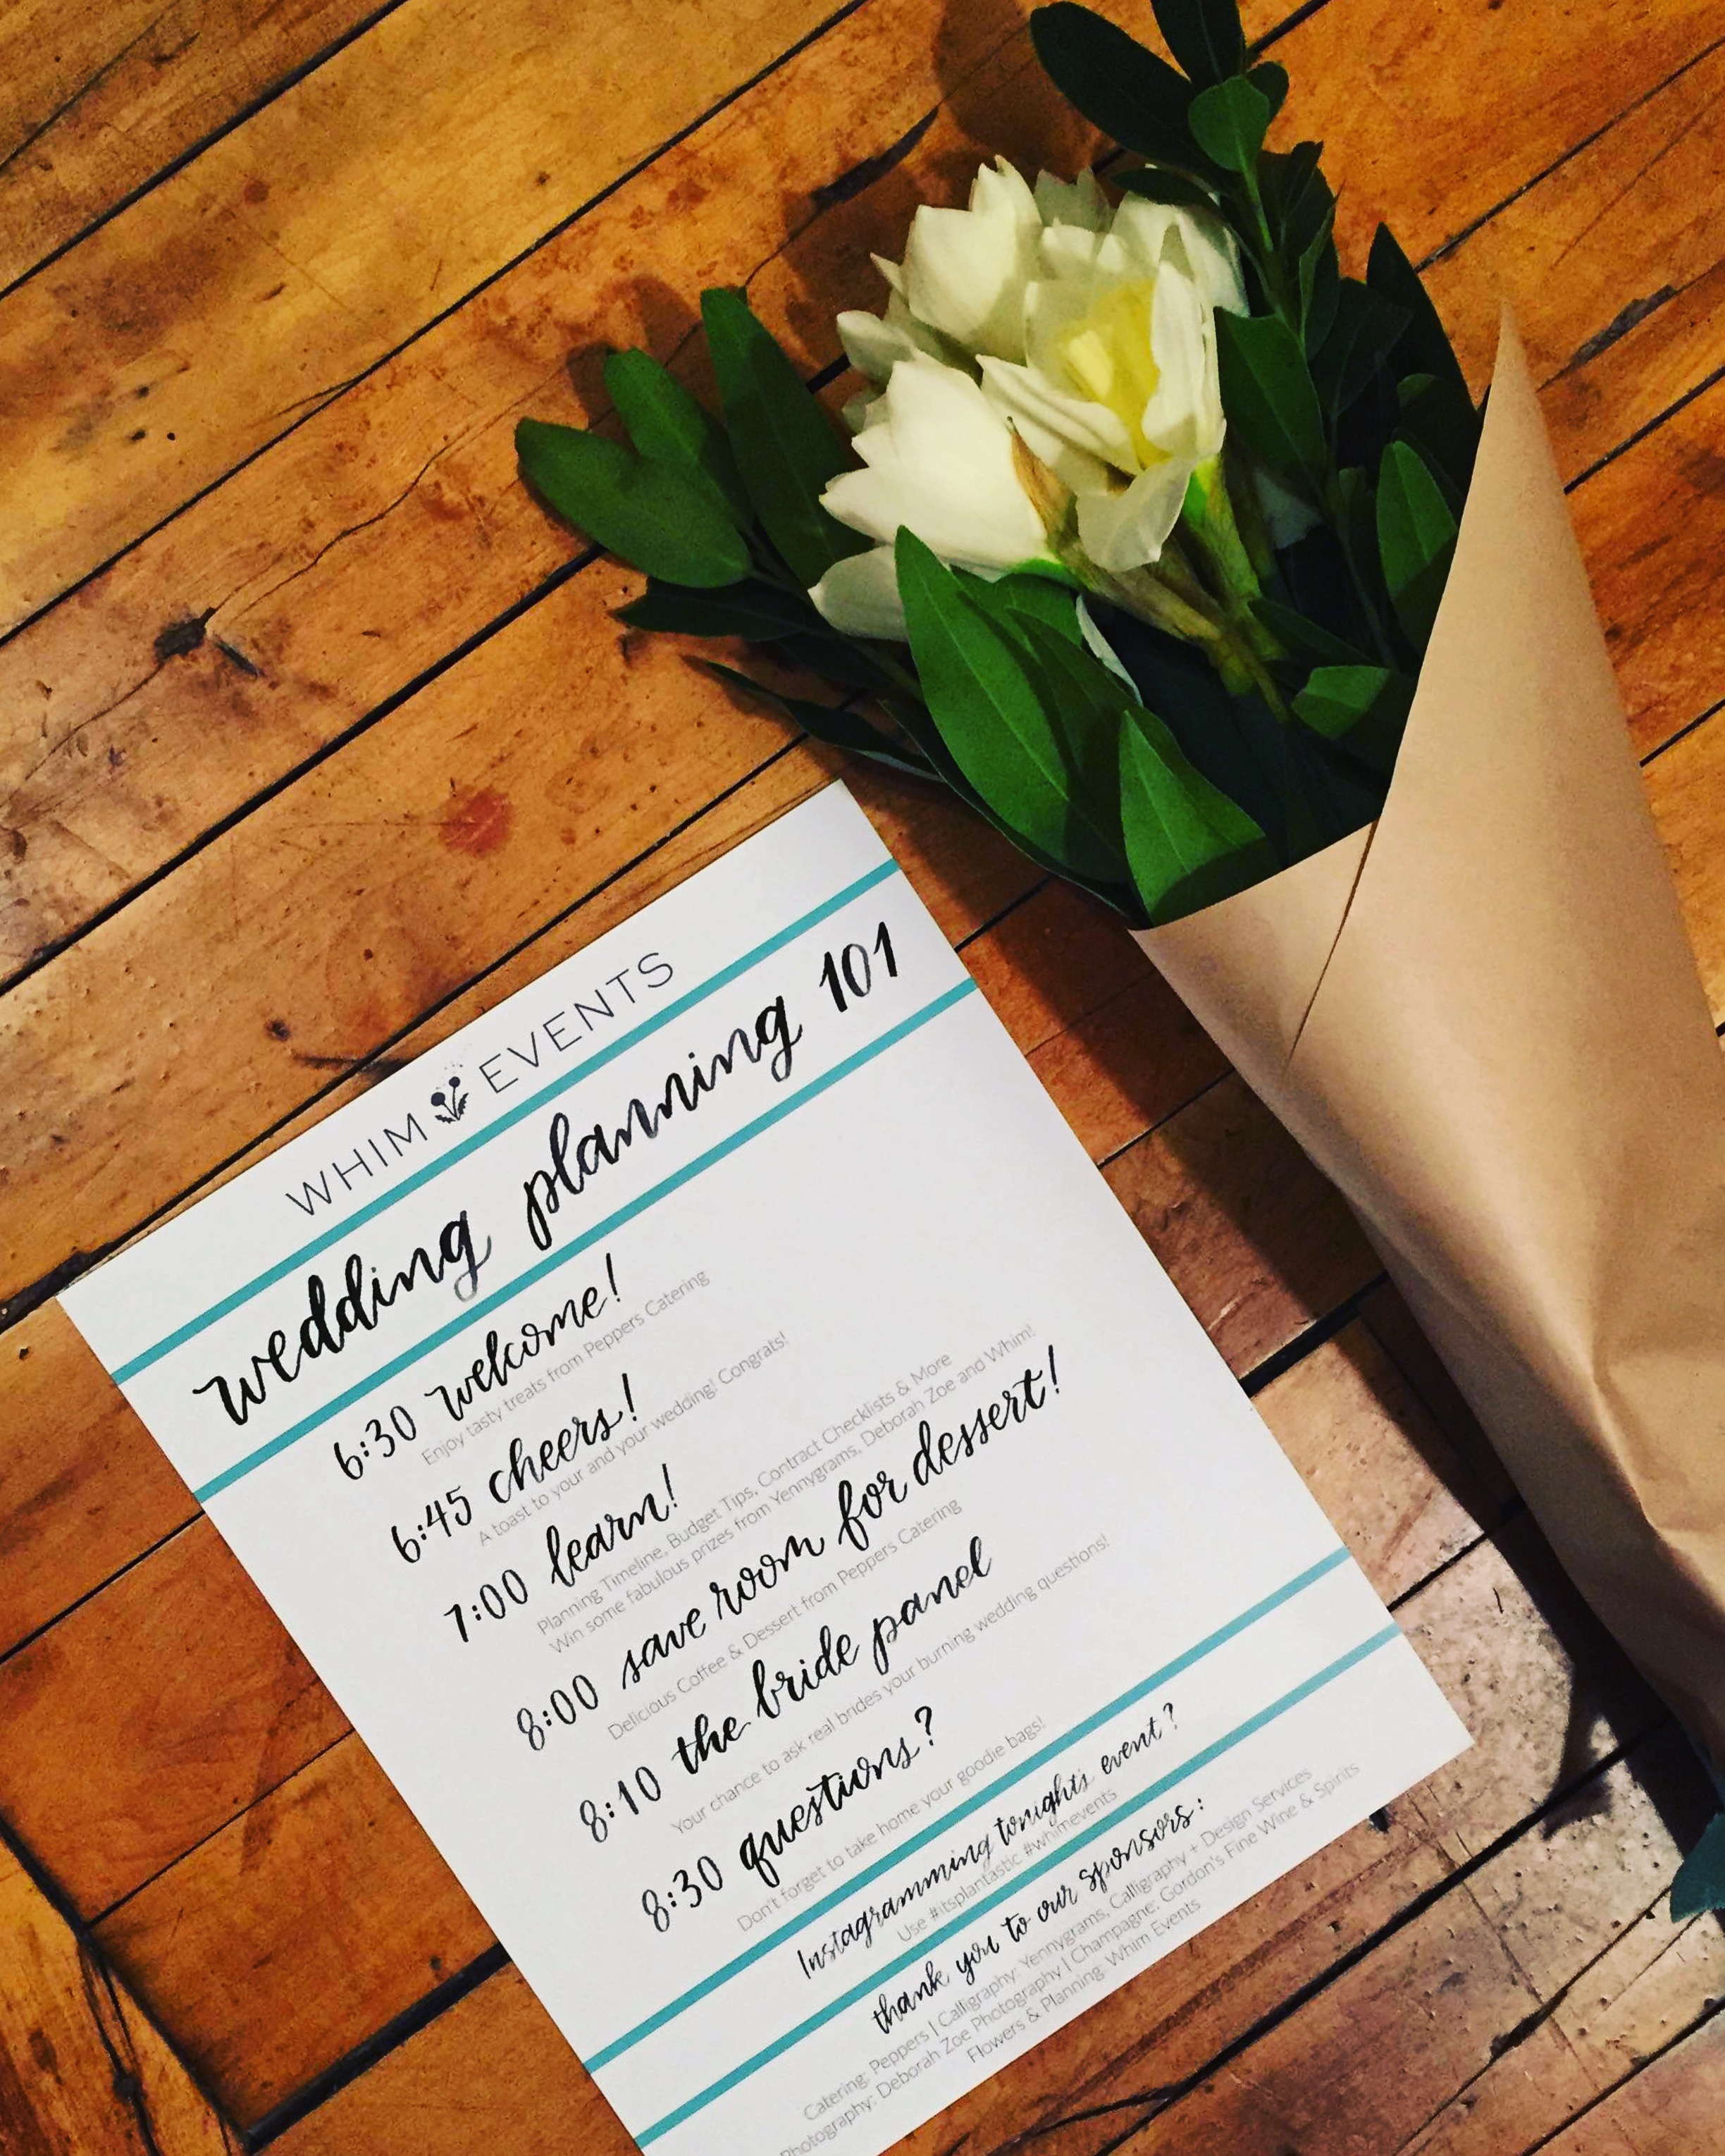 WHIM EVENTS
wedding planning 101
6:30 welcome!
Enjoy tasty treats from Peppers Catering
6:45 cheers!
A toast to your and your wedding! Congrats!
7:00 learn!
Planning Timeline, Budget Tips, Contract Checklists & More
Win some fabulous prizes from Yennygrams, Deborah Zoe and Whim!
8:00 save room for dessert!
Delicious Coffee & Dessert from Peppers Catering
8:10 the bride panel
Your chance to ask real brides your burning wedding questions!
8:30 questions?
Don't forget to take home your goodie bags!
Instagramming tonight's event?
Use #itsplantastic #whimevents
thank you to our sponsors:
Catering: Peppers | Calligraphy: Yennygrams, Calligraphy + Design Services
Photography: Deborah Zoe Photography | Champagne: Gordon's Fine Wine & Spirits
Flowers & Planning: Whim Events